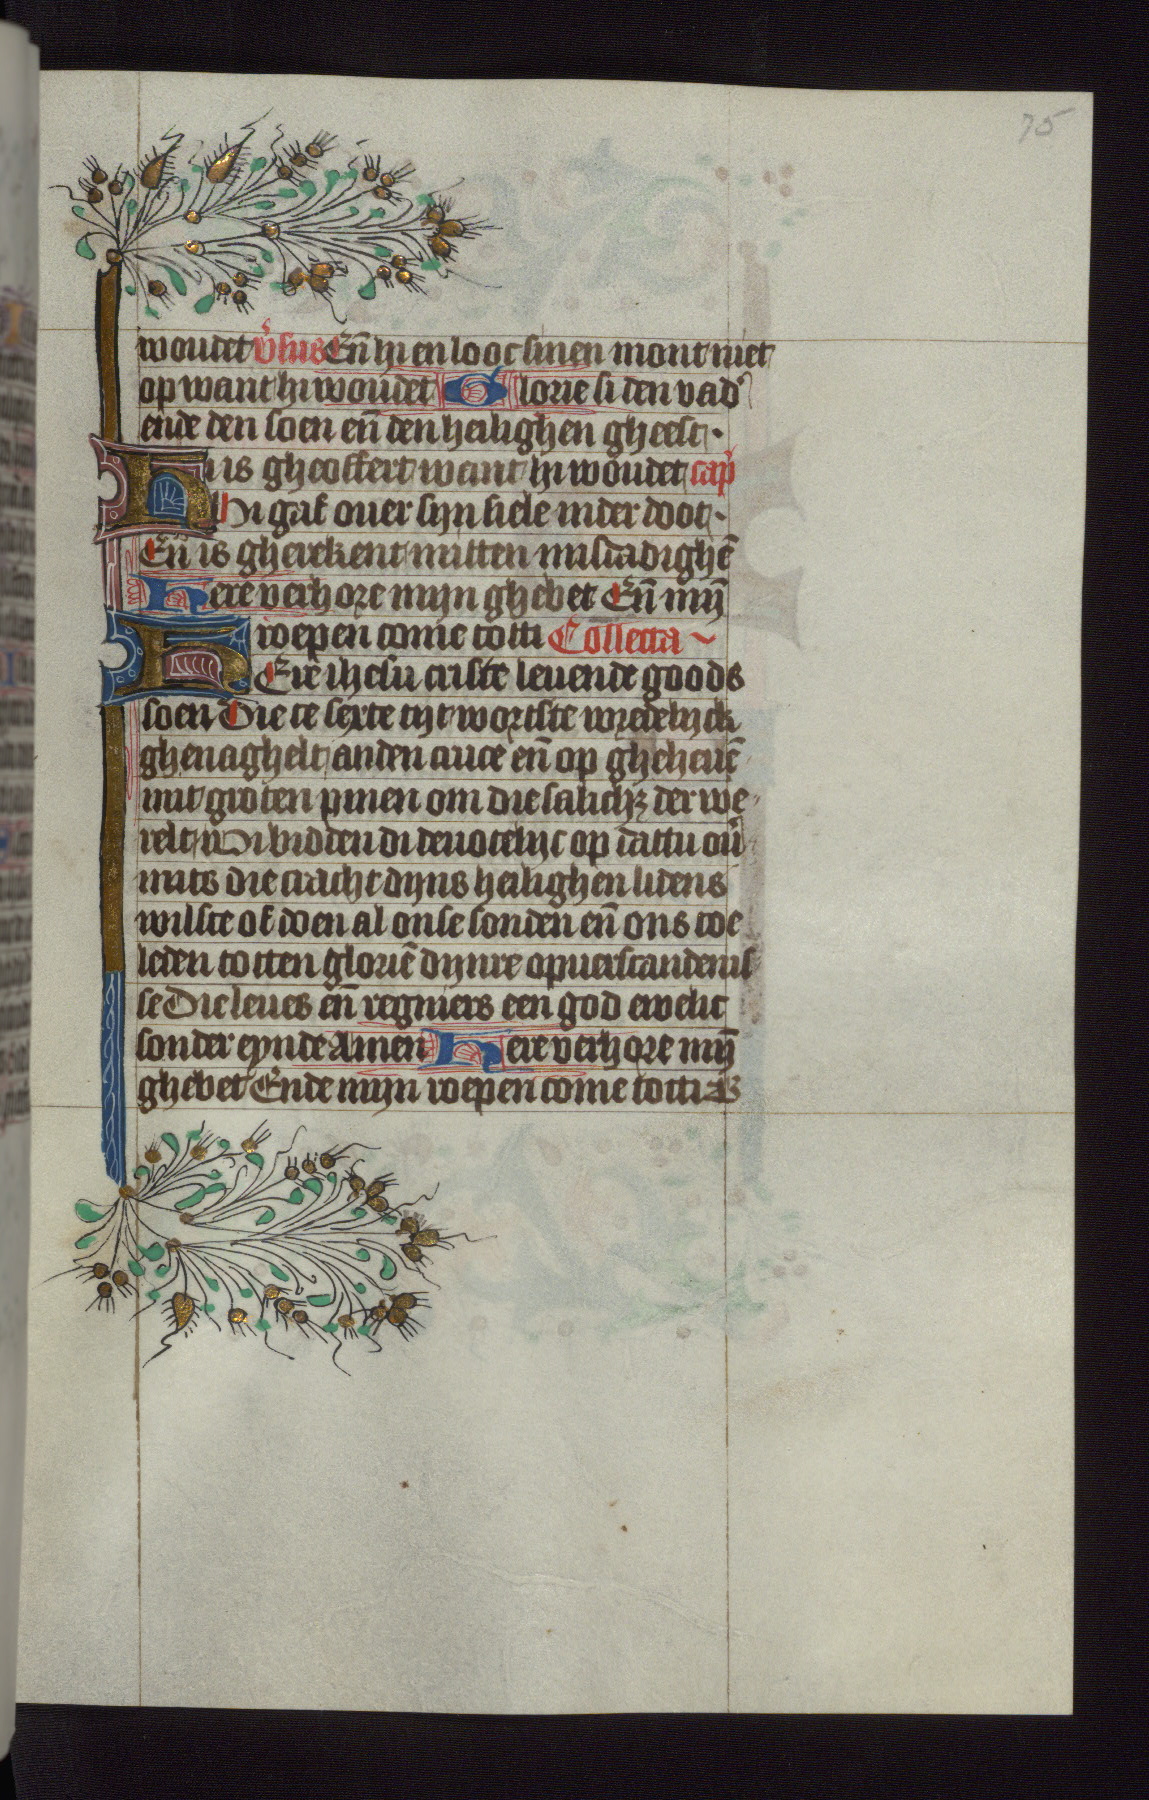 75
woudet v̄sus Eñ hi en looc sinen mont niet
op want hi woudet Glorie si den vad'
ende den soen eñ den heilighen gheest.
Hi is gheoffert want hi woudet cap̄
Hi gaf ouer sijn siele inder doot.
Eñ is gherekent mitten misdadighē
Here verhore mijn ghebet Eñ mij̄
roepen come totti Collecta
HEre ihesu criste leuende goods
soen Die te sexte tijt wortste wredelijck
ghenaghelt anden cruce eñ op gheheuē
mit groten pinen om die salichꝫ der we
relt Wi bidden di deuotelijc op dattu ou̅
mits die cracht dijns heilighen lidens
wilste of doen al onse sonden eñ ons toe
leden totten gloriē dijnre opuerstandenis
se Die leues eñ regniers een god ewelic
sonder eynde Amen Here verhore mij̄
ghebet Ende mijn roepen come totti